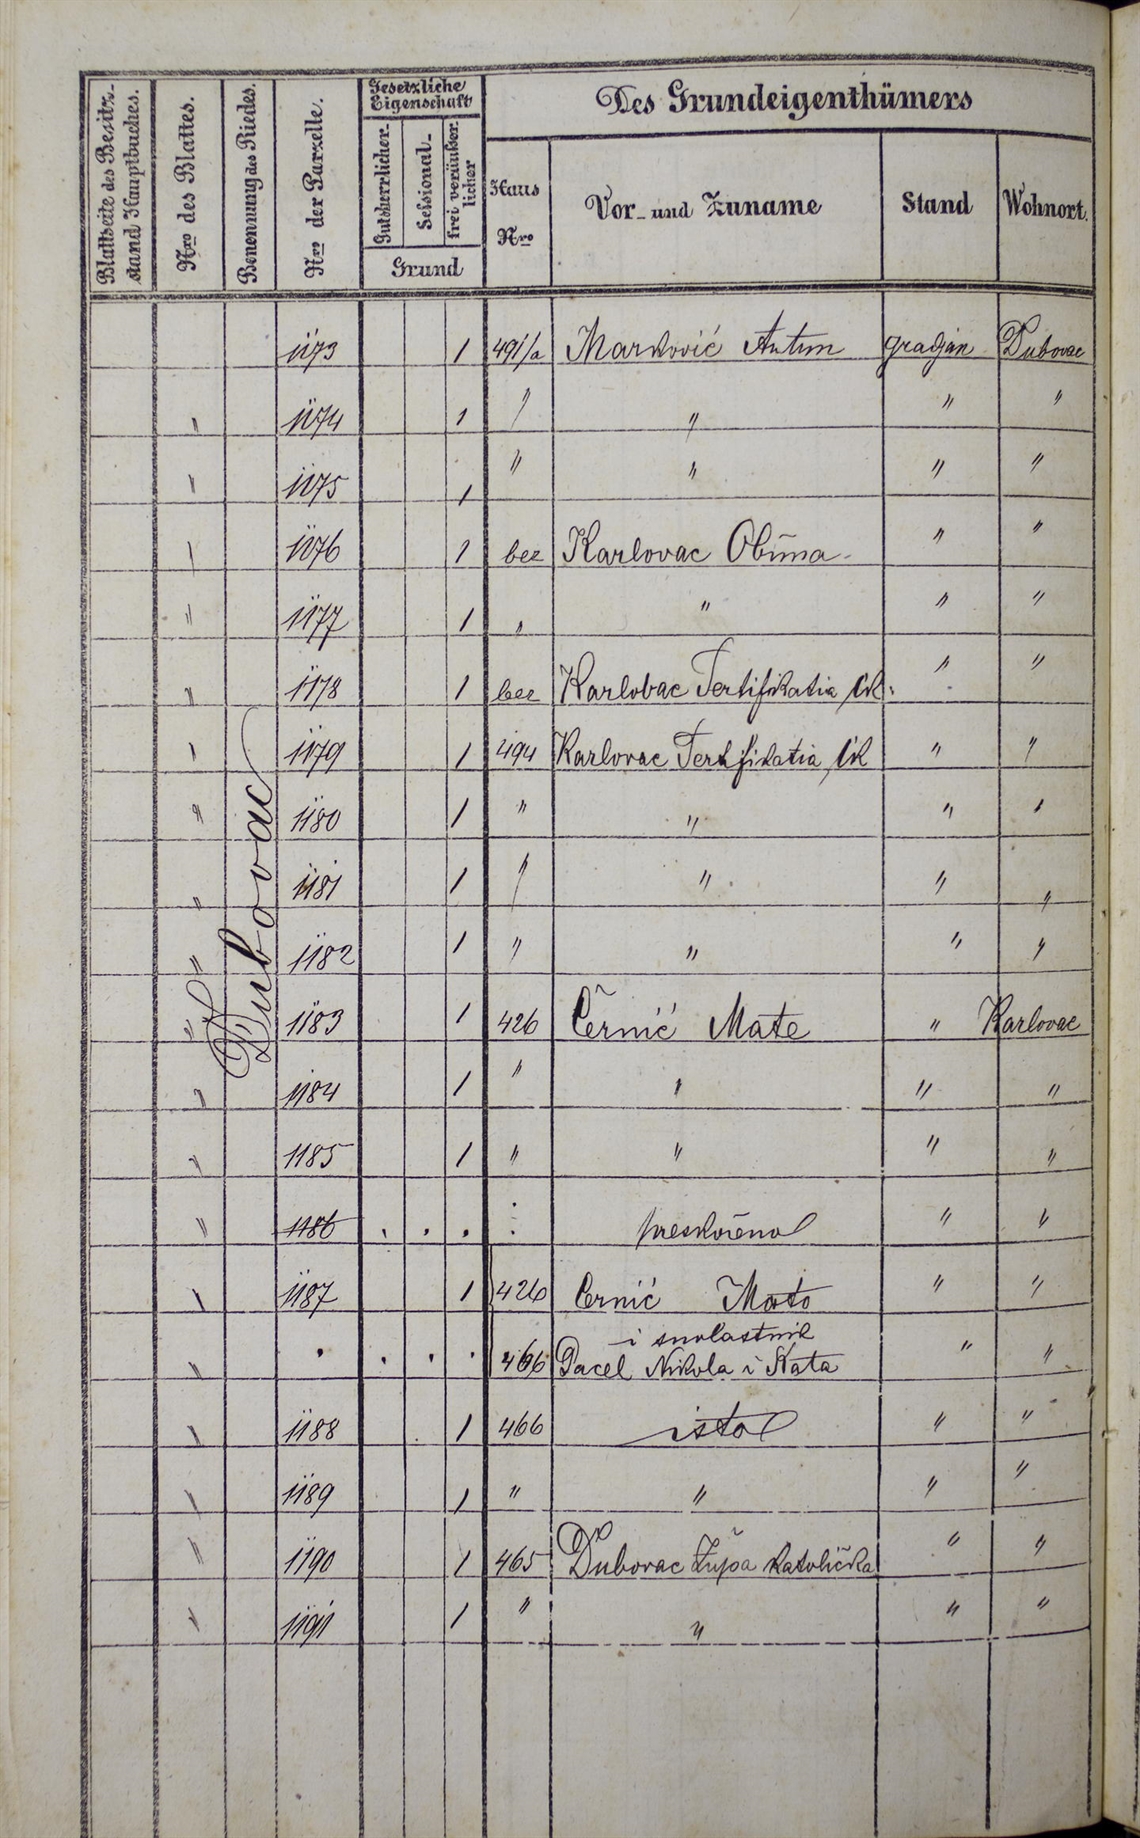 Blattseite des Besitz-
stand Hauptbuches.
Nro des Blattes.
Benennung des Riedes.
Nro der Parzelle.
Gesetzliche
Eigenschaft
Gutsherrlicher.
Sessional-
frei veräußer
licher
Grund
Des Grundeigenthümers
Haus
Nro
Vor- und Zuname
Stand
Wohnort.
Dubovac
1173 1 491/a Marković Antun gradjan Dubovac
" 1174 1 " " " "
" 1175 1 " " " "
" 1176 1 bez Karlovac Obćina " "
" 1177 1 " " " "
" 1178 1 bez Karlovac Fertifikatia " "
" 1179 1 494 Karlovac Fertifikatia " "
" 1180 1 " " " "
" 1181 1 " " " "
" 1182 1 " " " "
" 1183 1 426 Černić Mate " Karlovac
" 1184 1 " " " "
" 1185 1 " " " "
" 1186 . . . : preskočeno " "
" 1187 1 426 Cernić Mato " "
i suvlastnik
" . . . . 466 Pacel Nikola i Kata " "
" 1188 1 466 isto " "
" 1189 1 " " " "
" 1190 1 465 Dubovac Župa katolička " "
" 1191 1 " " " "